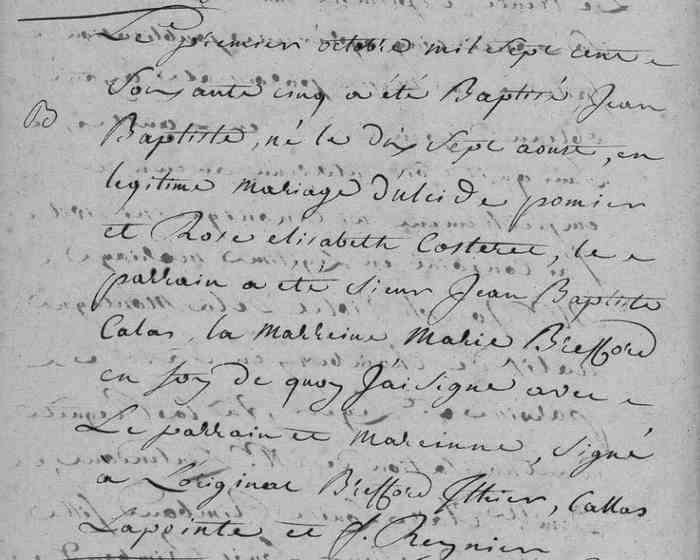 Le premier octobre mil sept cent
Soixante cinq a été Baptisé, Jean
B
Baptiste, né le dix Sept aoust, en
legitime mariage Dulcide pomier
et Rose elisabeth Costeret, le
parrain a été Sieur Jean Baptiste
Calas, la Marreine Marie Brefford
en foy de quoy J'ai signé avec
Le parrain et Mareinne, signé
a L'original Brefford Ithier, Callas
Lapointe et f. Reynier